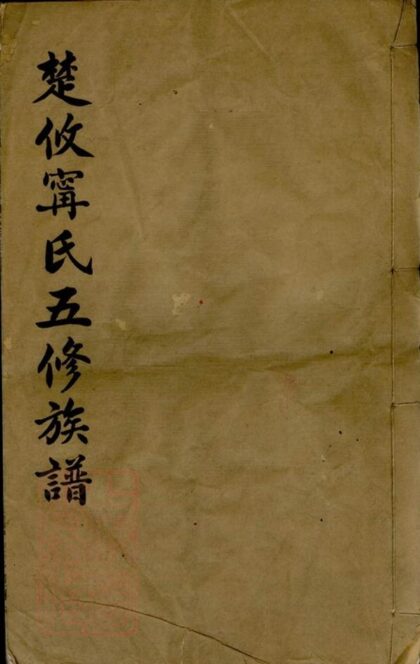 楚攸甯氏五修族譜